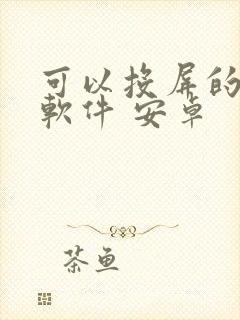 可以投屏的
軟件 安卓
茶鱼